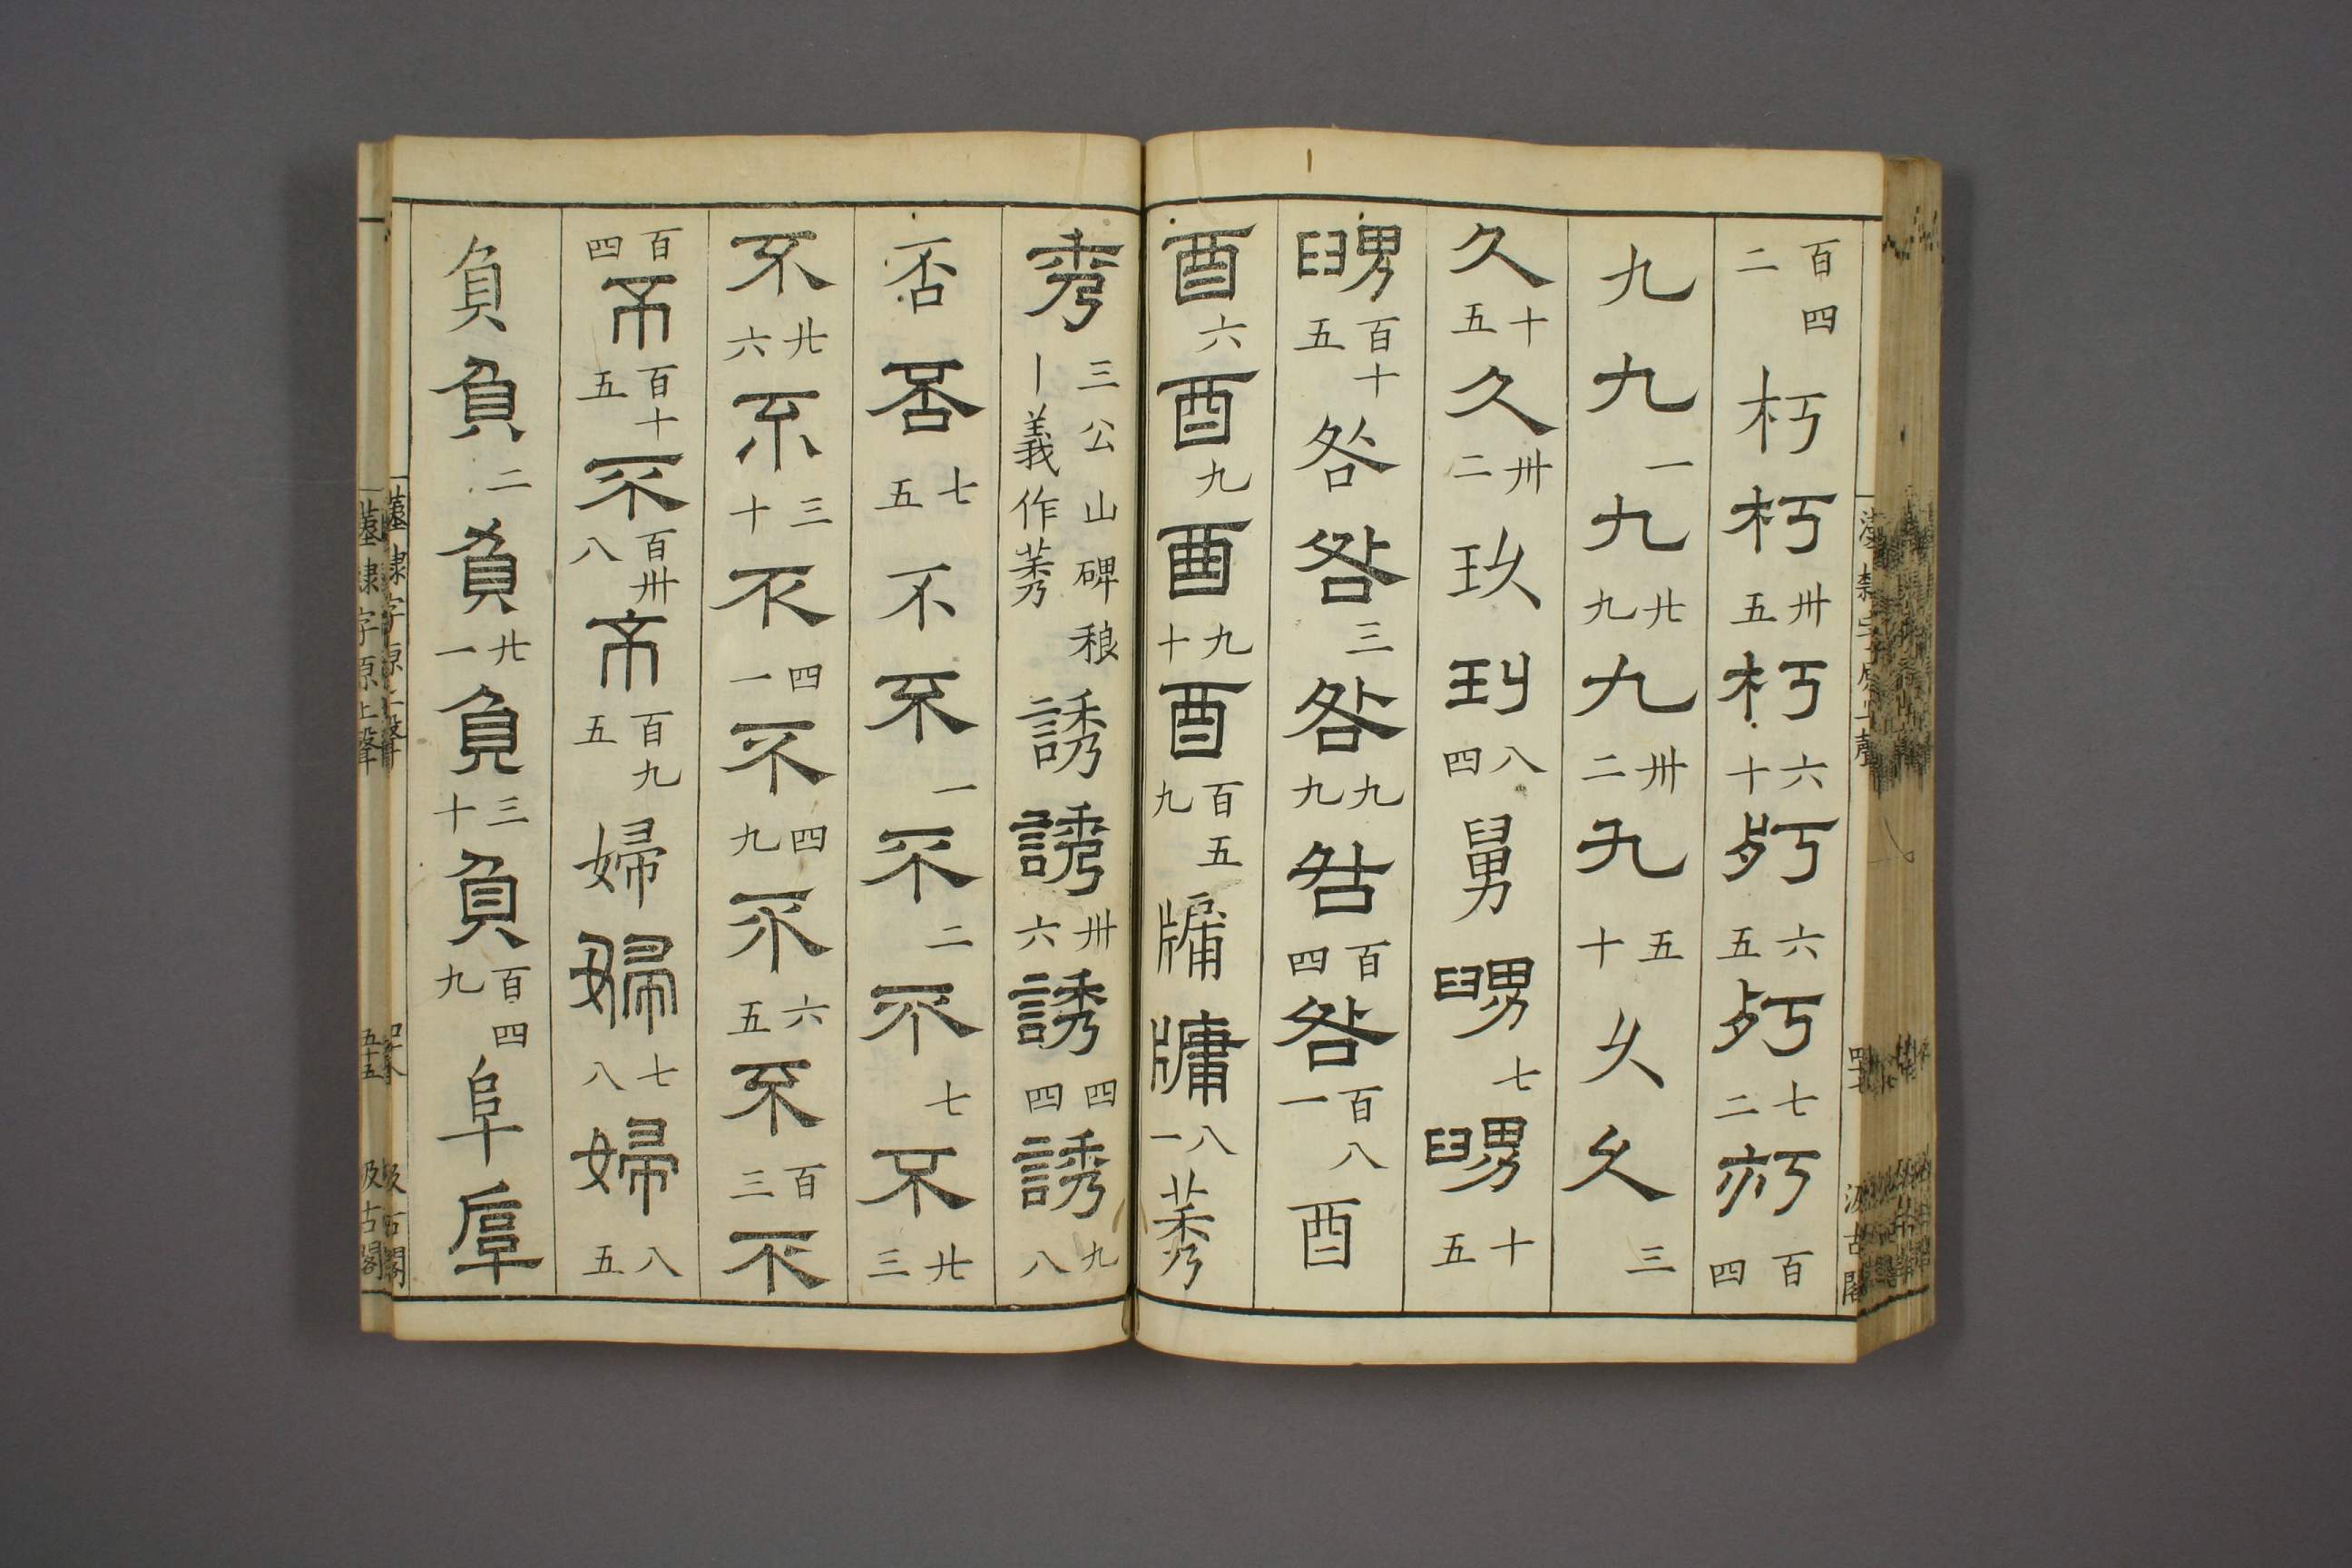 百四二朽朽卅五朽六十㱙六五㱙七二朽百四
九九一九廿九九卅二九五十久久三
久十五久卅二玖玖八四舅舅七舅十五
舅百十五咎咎三咎九九咎百四咎百八一酉
酉六酉九酉九十酉百五九牗牗八一莠
莠三公山碑稂｜義作莠誘誘卅六誘四四誘九八
否否七五不不一不二不七不廿三
不廿六不三十不四一不四九不六五不百三不
百四不百十五不百卅八不百九五婦婦七八婦八五
負負二負廿一負三十負百四九阜阜
漢隸字原上聲
汲古閣
漢隸字原上聲
五十五
汲古閣